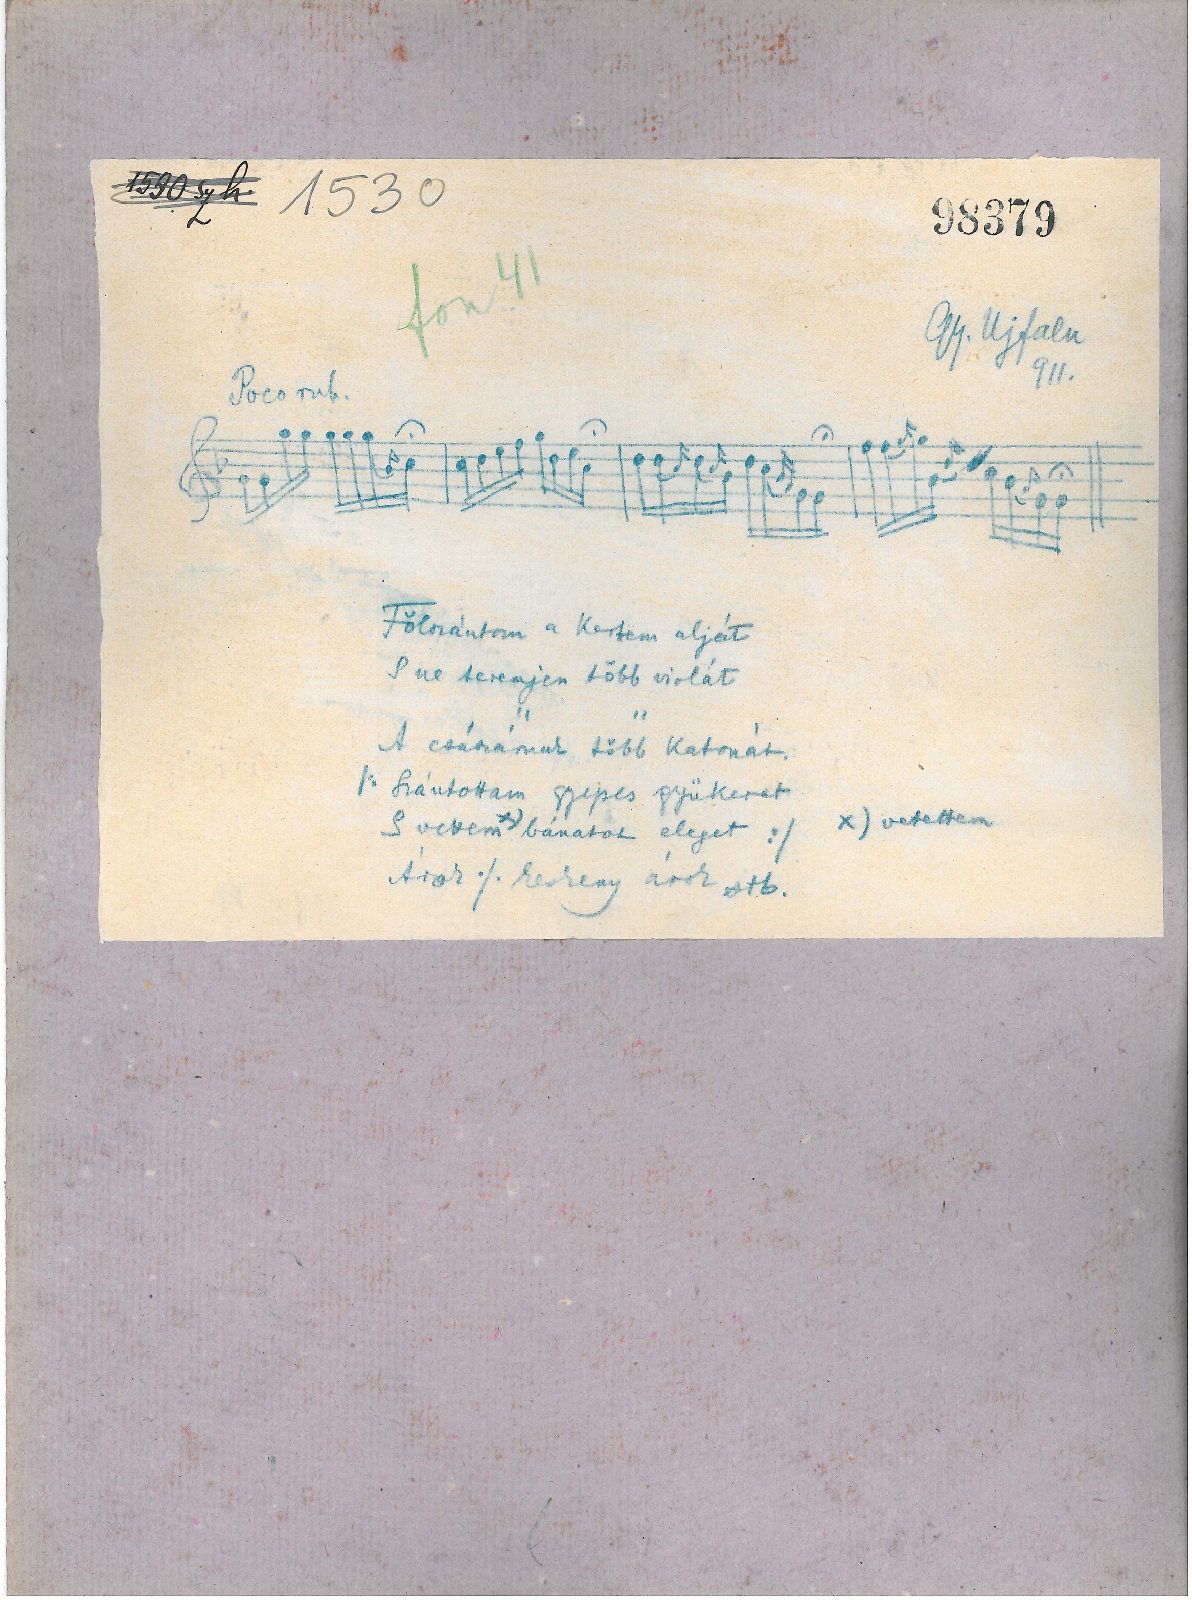 1530
98379
fon 41
Gy. Ujfalu
911.
Poco rub.
Fölszántom a kertem alját
S ne teremjen több violát
" "
A császárnak több katonát.
/: Szántottam gyepes gyükeret
S vettem x) bánatot eleget :/
x) vetettem
Árok ./. kerkeny árok stb.